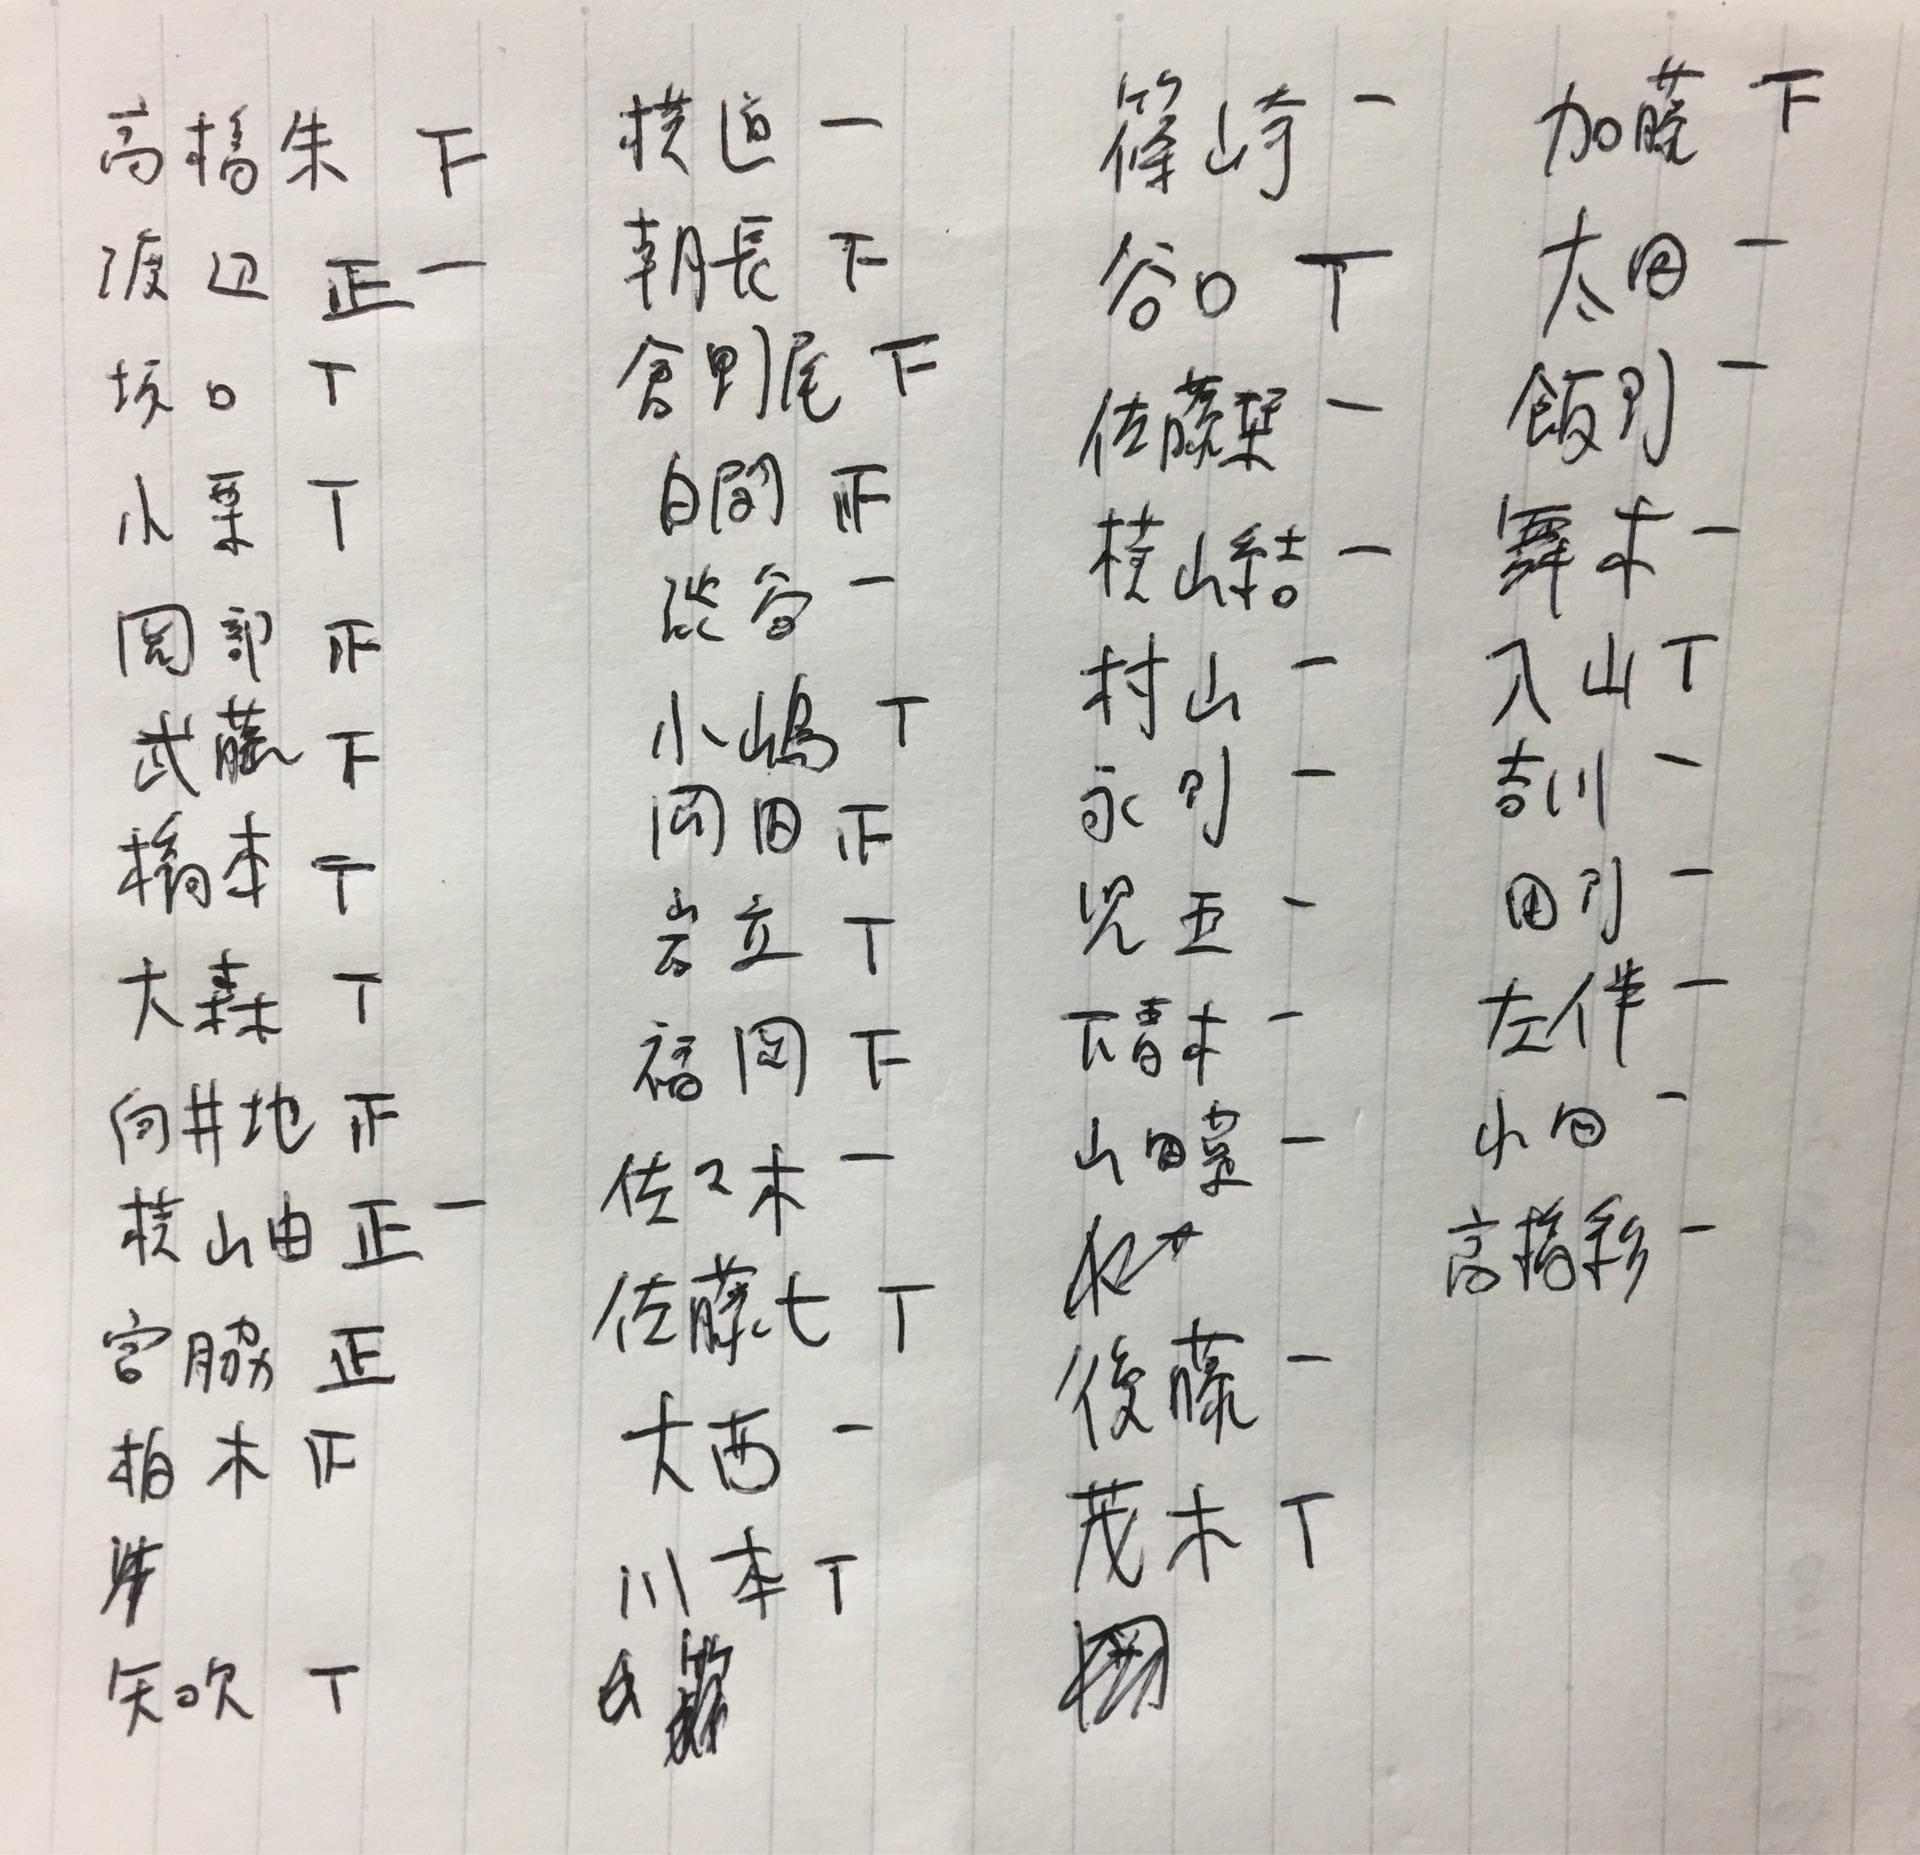 高橋朱 下
渡辺 正一
坂口 T
小栗 T
岡部 正
武藤 下
橋本 T
大森 T
向井地 正
横山由 正一
宮脇 正
柏木 正
矢吹 T
横道 一
朝長 下
倉野尾 下
白間 正
渋谷 一
小嶋 T
岡田 正
岩立 T
福岡 下
佐々木 一
佐藤七 T
大西 一
川本 T
篠崎 一
谷口 T
佐藤栞 一
横山結 一
村山 一
永野 一
児玉 一
下青木 一
山田 一
後藤 一
茂木 T
加藤 下
太田 一
飯野 一
舞木 一
入山 T
吉川 一
田野 一
左伴 一
小田 一
高橋彩 一